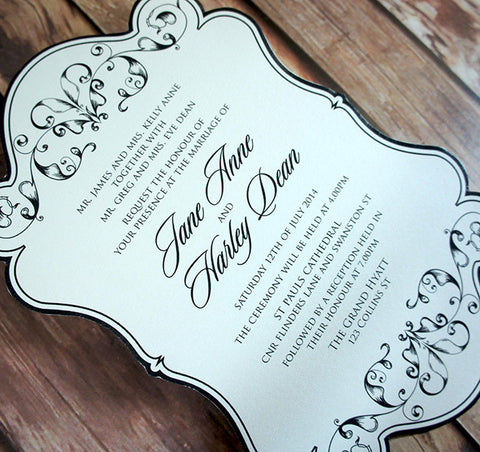 MR. JAMES AND MRS. KELLY ANNE
TOGETHER WITH
MR. GREG AND MRS. EVE DEAN
REQUEST THE HONOUR OF
YOUR PRESENCE AT THE MARRIAGE OF
Jane Anne
AND
Harley Dean
SATURDAY 12TH OF JULY 2014
THE CEREMONY WILL BE HELD AT 4:00PM
ST PAULS CATHEDRAL
CNR FLINDERS LANE AND SWANSTON ST
FOLLOWED BY A RECEPTION HELD IN
THEIR HONOUR AT 7:00PM
THE GRAND HYATT
123 COLLINS ST